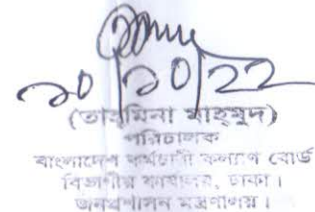 ২০/১০/22
(তাহমিনা মাহমুদ)
পরিচালক
বাংলাদেশ কর্মচারী কল্যাণ বোর্ড
বিভাগীয় কার্যালয়, ঢাকা।
জনপ্রশাসন মন্ত্রণালয়।